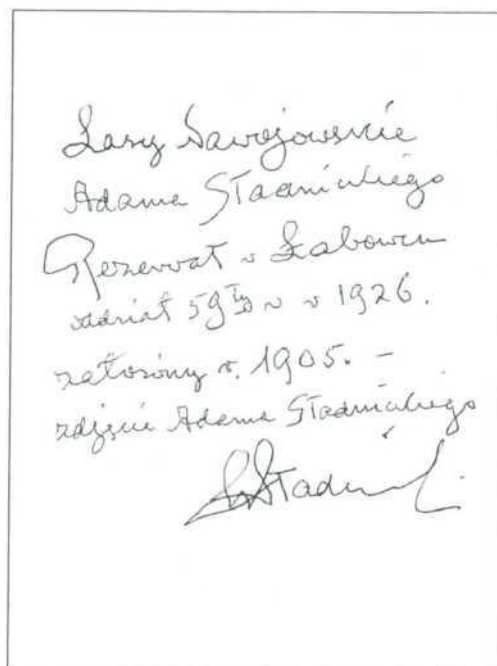 Lasy Nawojowskie
Adama Stadnickiego
Rezerwat w Łabowcu
oddział 59 w r 1926.
założony r. 1905. -
zdjęcie Adama Stadnickiego
Stadnicki